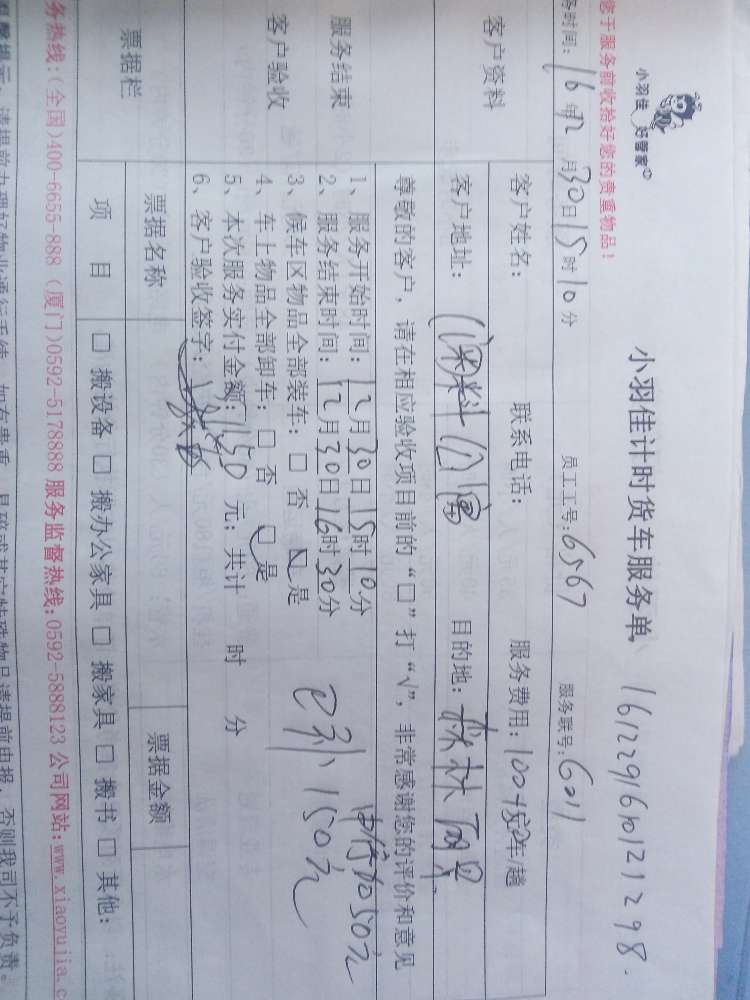 小羽佳 好管家
小羽佳计时货车服务单 161229161012121298.
您于服务前收拾好您的贵重物品！
务时间：16年12月30日15时10分 员工工号：6567 服务联号：6011
客户资料
客户姓名： 联系电话： 服务费用：100+50元/趟
客户地址： 公寓 目的地：
尊敬的客户，请在相应验收项目前的“□”打“√”，非常感谢您的评价和意见
服务结束
客户验收
1、服务开始时间：12月30日15时10分
2、服务结束时间：12月30日16时30分
3、候车区物品全部装车：□ 否 □ 是
4、车上物品全部卸车：□ 否 □ 是
5、本次服务实付金额：150 元；共计 时 分
6、客户验收签字：
加50元
已补150元
票据栏
票据名称 票据金额
项 目 □ 搬设备 □ 搬办公家具 □ 搬家具 □ 搬书 □ 其他：
务热线：(全国)400-6655-888 (厦门)0592-5178888 服务监督热线：0592-5888123 公司网站：www.xiaoyujia.c
请提前办理好物业通行手续，如有贵重、易碎或其它特殊物品请提前申报，否则我司不予负责。